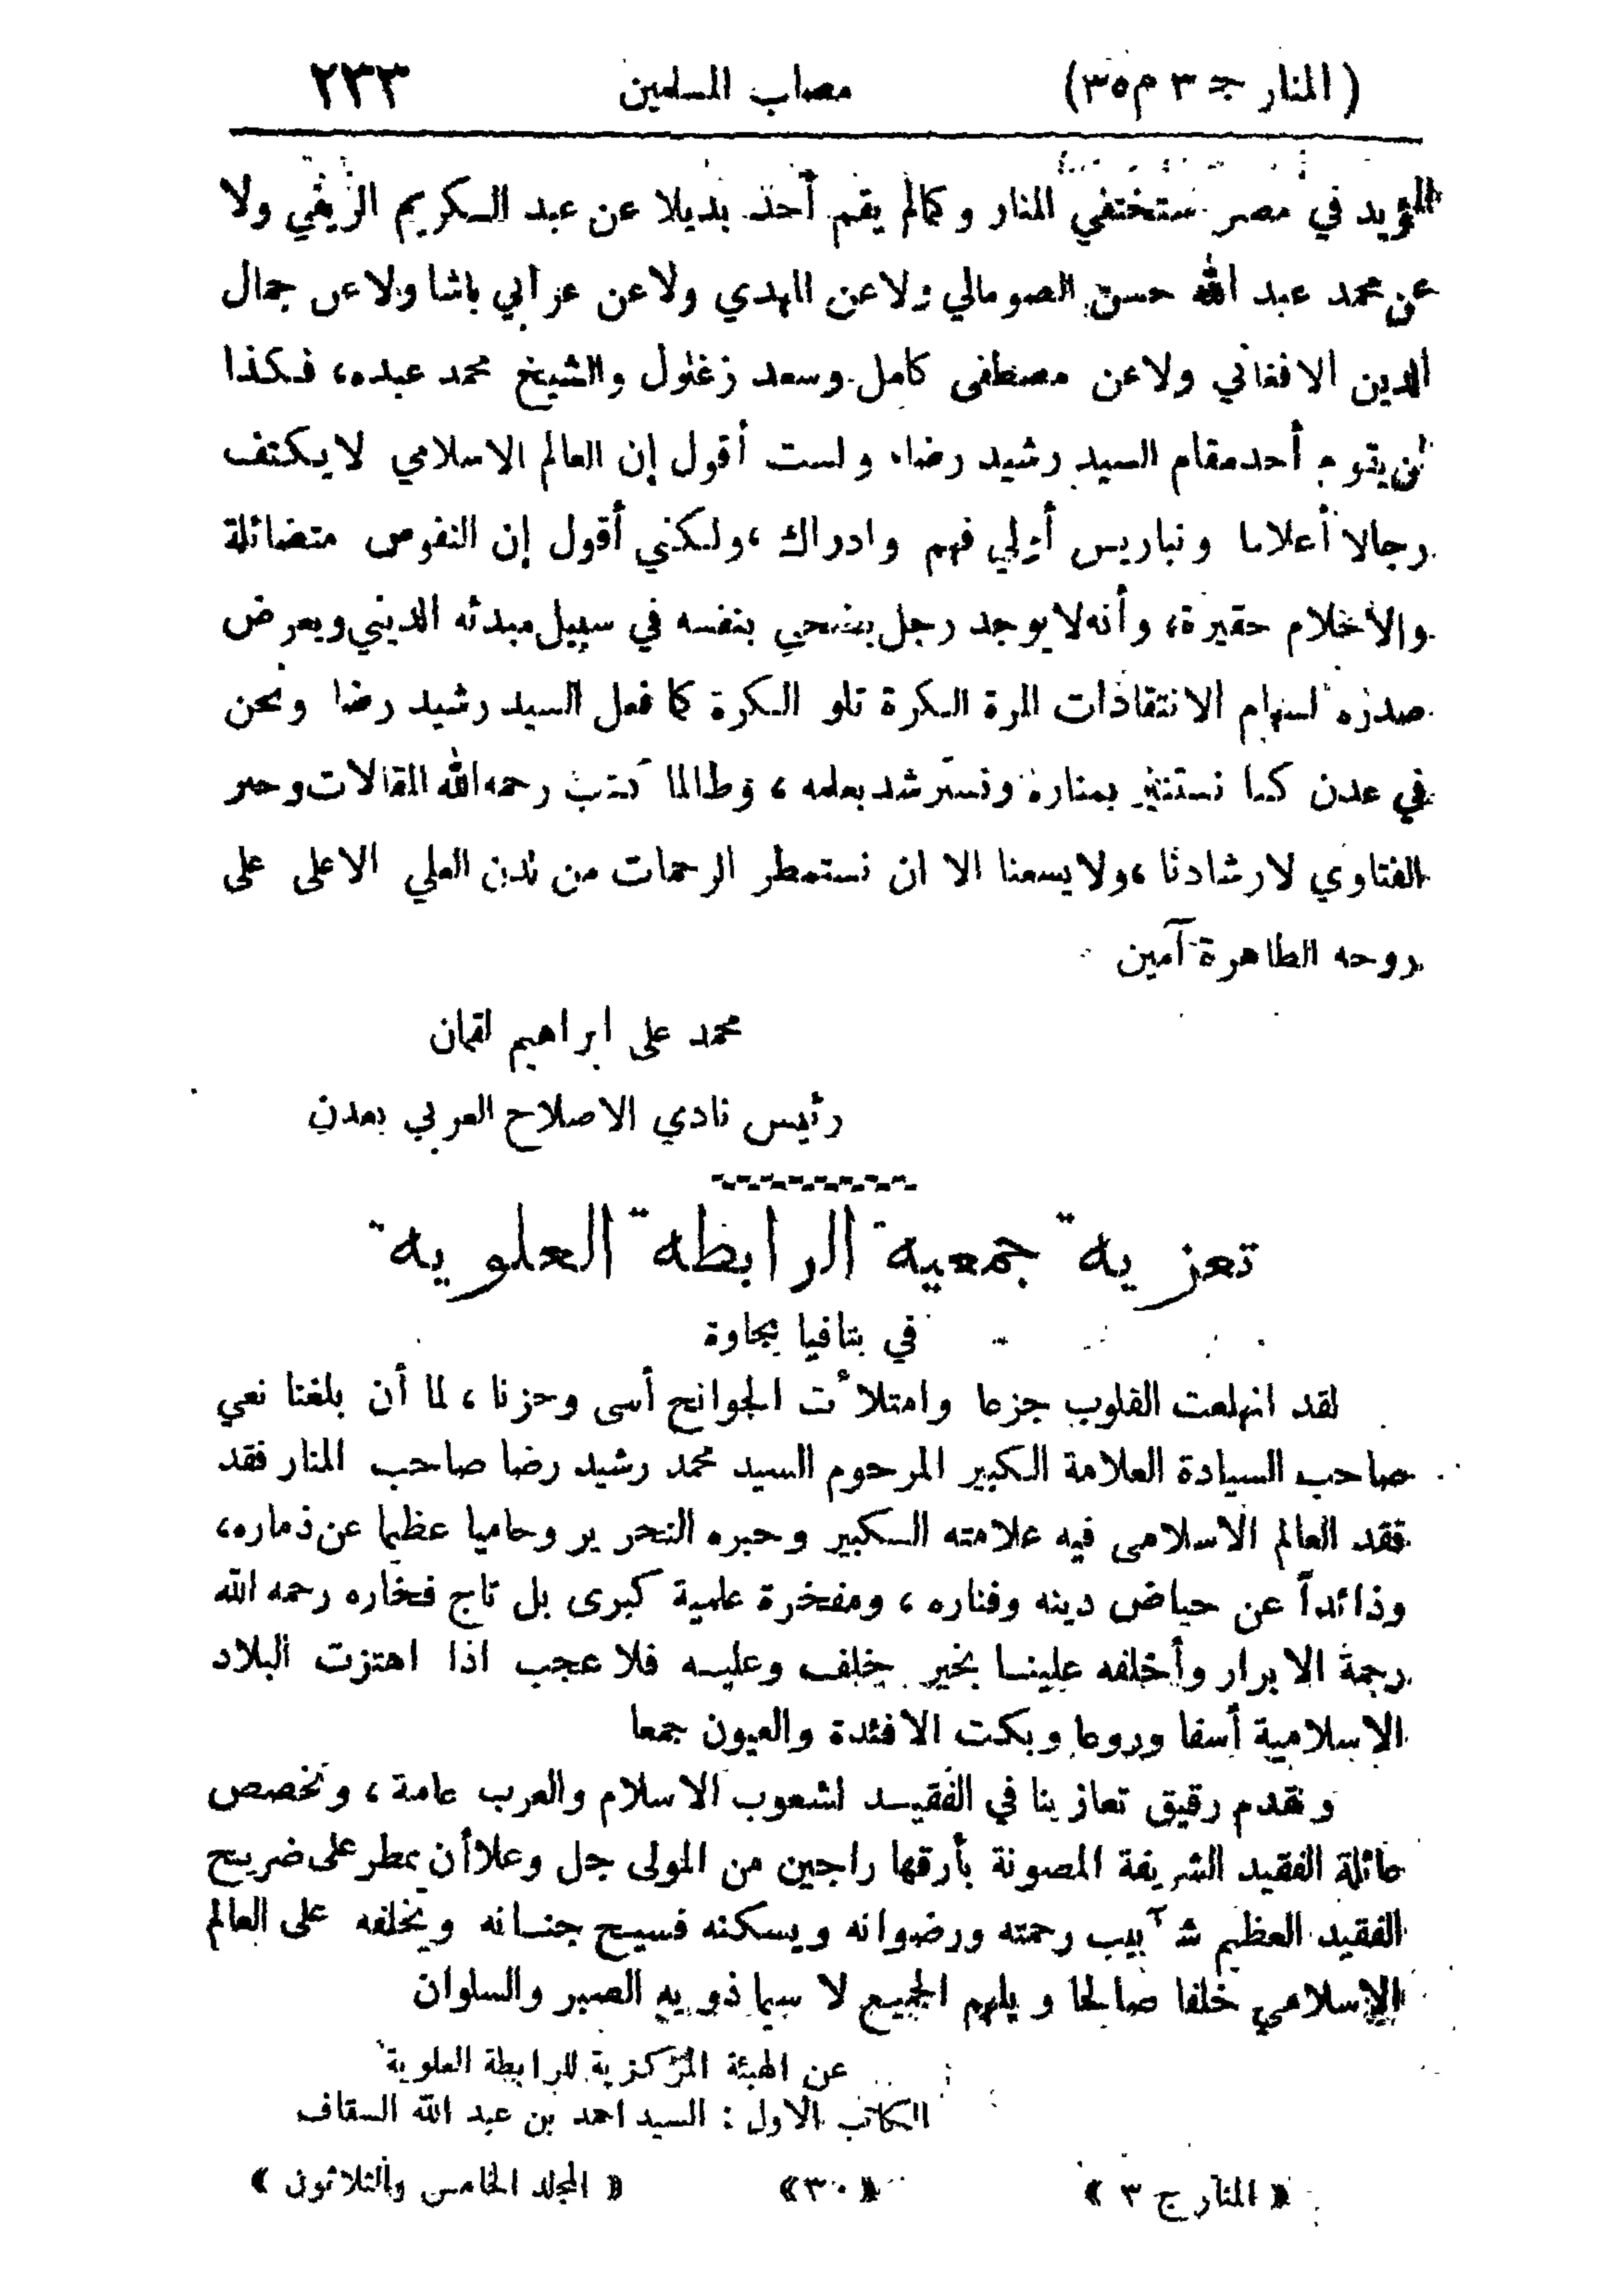 (المنار جـ ٣ م ٣٥) مصاب المسلمين ٢٣٣
المؤيد في مصر ستختفي المنار وكما لم يقم أحد بديلا عن عبد الكريم الريفي ولا
عن محمد عبد الله حسن الصومالي ولا عن المهدي ولا عن عرابي باشا ولا عن جمال
الدين الافغاني ولا عن مصطفى كامل وسعد زغلول والشيخ محمد عبده، فكذا
لن يقوم أحد مقام السيد رشيد رضا، ولست أقول إن العالم الاسلامي لا يكتنف
رجالا أعلاما ونباريس أولي فهم وادراك، ولكني أقول إن النفوس متضائلة
والاحلام حقيرة، وأنه لا يوجد رجل يضحي بنفسه في سبيل مبدئه الديني ويعرض
صدره لسهام الانتقادات المرة الكرة تلو الكرة كما فعل السيد رشيد رضا ونحن
في عدن كنا نستنير بمناره ونسترشد بعلمه، وطالما كتب رحمه الله المقالات وحبر
الفتاوي لارشادنا، ولا يسعنا الا ان نستمطر الرحمات من لدن العلي الاعلى على
روحه الطاهرة آمين
محمد على ابراهيم لقمان
رئيس نادي الاصلاح العربي بعدن
تعزية جمعية الرابطة العلوية
في بتافيا بجاوة
لقد انهلعت القلوب جزعا وامتلأت الجوانح أسى وحزنا، لما أن بلغنا نعي
صاحب السيادة العلامة الكبير المرحوم السيد محمد رشيد رضا صاحب المنار فقد
فقد العالم الاسلامى فيه علامته الكبير وحبره النحرير وحاميا عظيما عن ذماره،
وذائداً عن حياض دينه وفناره، ومفخرة علمية كبرى بل تاج فخاره رحمه الله
رحمة الابرار وأخلفه علينا بخير خلف وعليه فلا عجب اذا اهتزت البلاد
الاسلامية أسفا وروعا وبكت الافئدة والعيون جمعا
ونقدم رقيق تعازينا في الفقيد لشعوب الاسلام والعرب عامة، ونخصص
عائلة الفقيد الشريفة المصونة بأرقها راجين من المولى جل وعلا أن يمطر على ضريح
الفقيد العظيم شآبيب رحمته ورضوانه ويسكنه فسيح جنانه ويخلفه على العالم
الاسلامي خلفا صالحا ويلهم الجميع لا سيما ذويه الصبر والسلوان
عن الهيئة المركزية للرابطة العلوية
الكاتب الاول : السيد احمد بن عبد الله السقاف
« المنار ج ٣ » « ٣٠ » « المجلد الخامس والثلاثون »